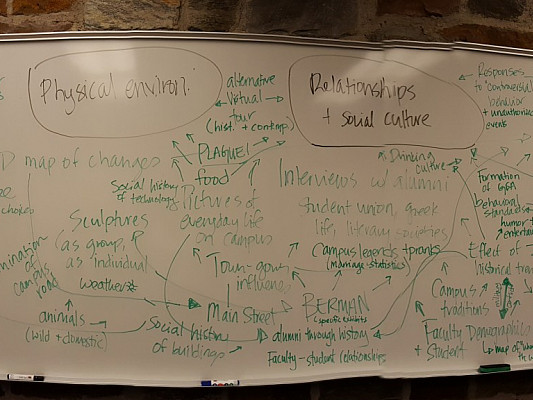 Physical environ.
alternative
Virtual
tour
(hist. + contemp)
Relationships
+ social culture
Responses
to "controversial
behavior
+ unauthorized
events
D map of changes
PLAGUE!
food
Social history
of technology
Pictures of
everyday life
on campus
Drinking
culture
Interviews w/ alumni
student union, greek
life, literary societies
formation
of
behavioral
standards
humor +
Sculptures
(as group,
as individual
weather*
Campus legends + pranks
(marriage statistics)
Effect of
historical
Town-gown
influence
campus
road
Main Street
BERMAN
(specific exhibits)
Campus
traditions
military
animals
(wild + domestic)
Social history
of buildings
alumni through history
Faculty - student relationships
Faculty Demographics
+ Student
map of